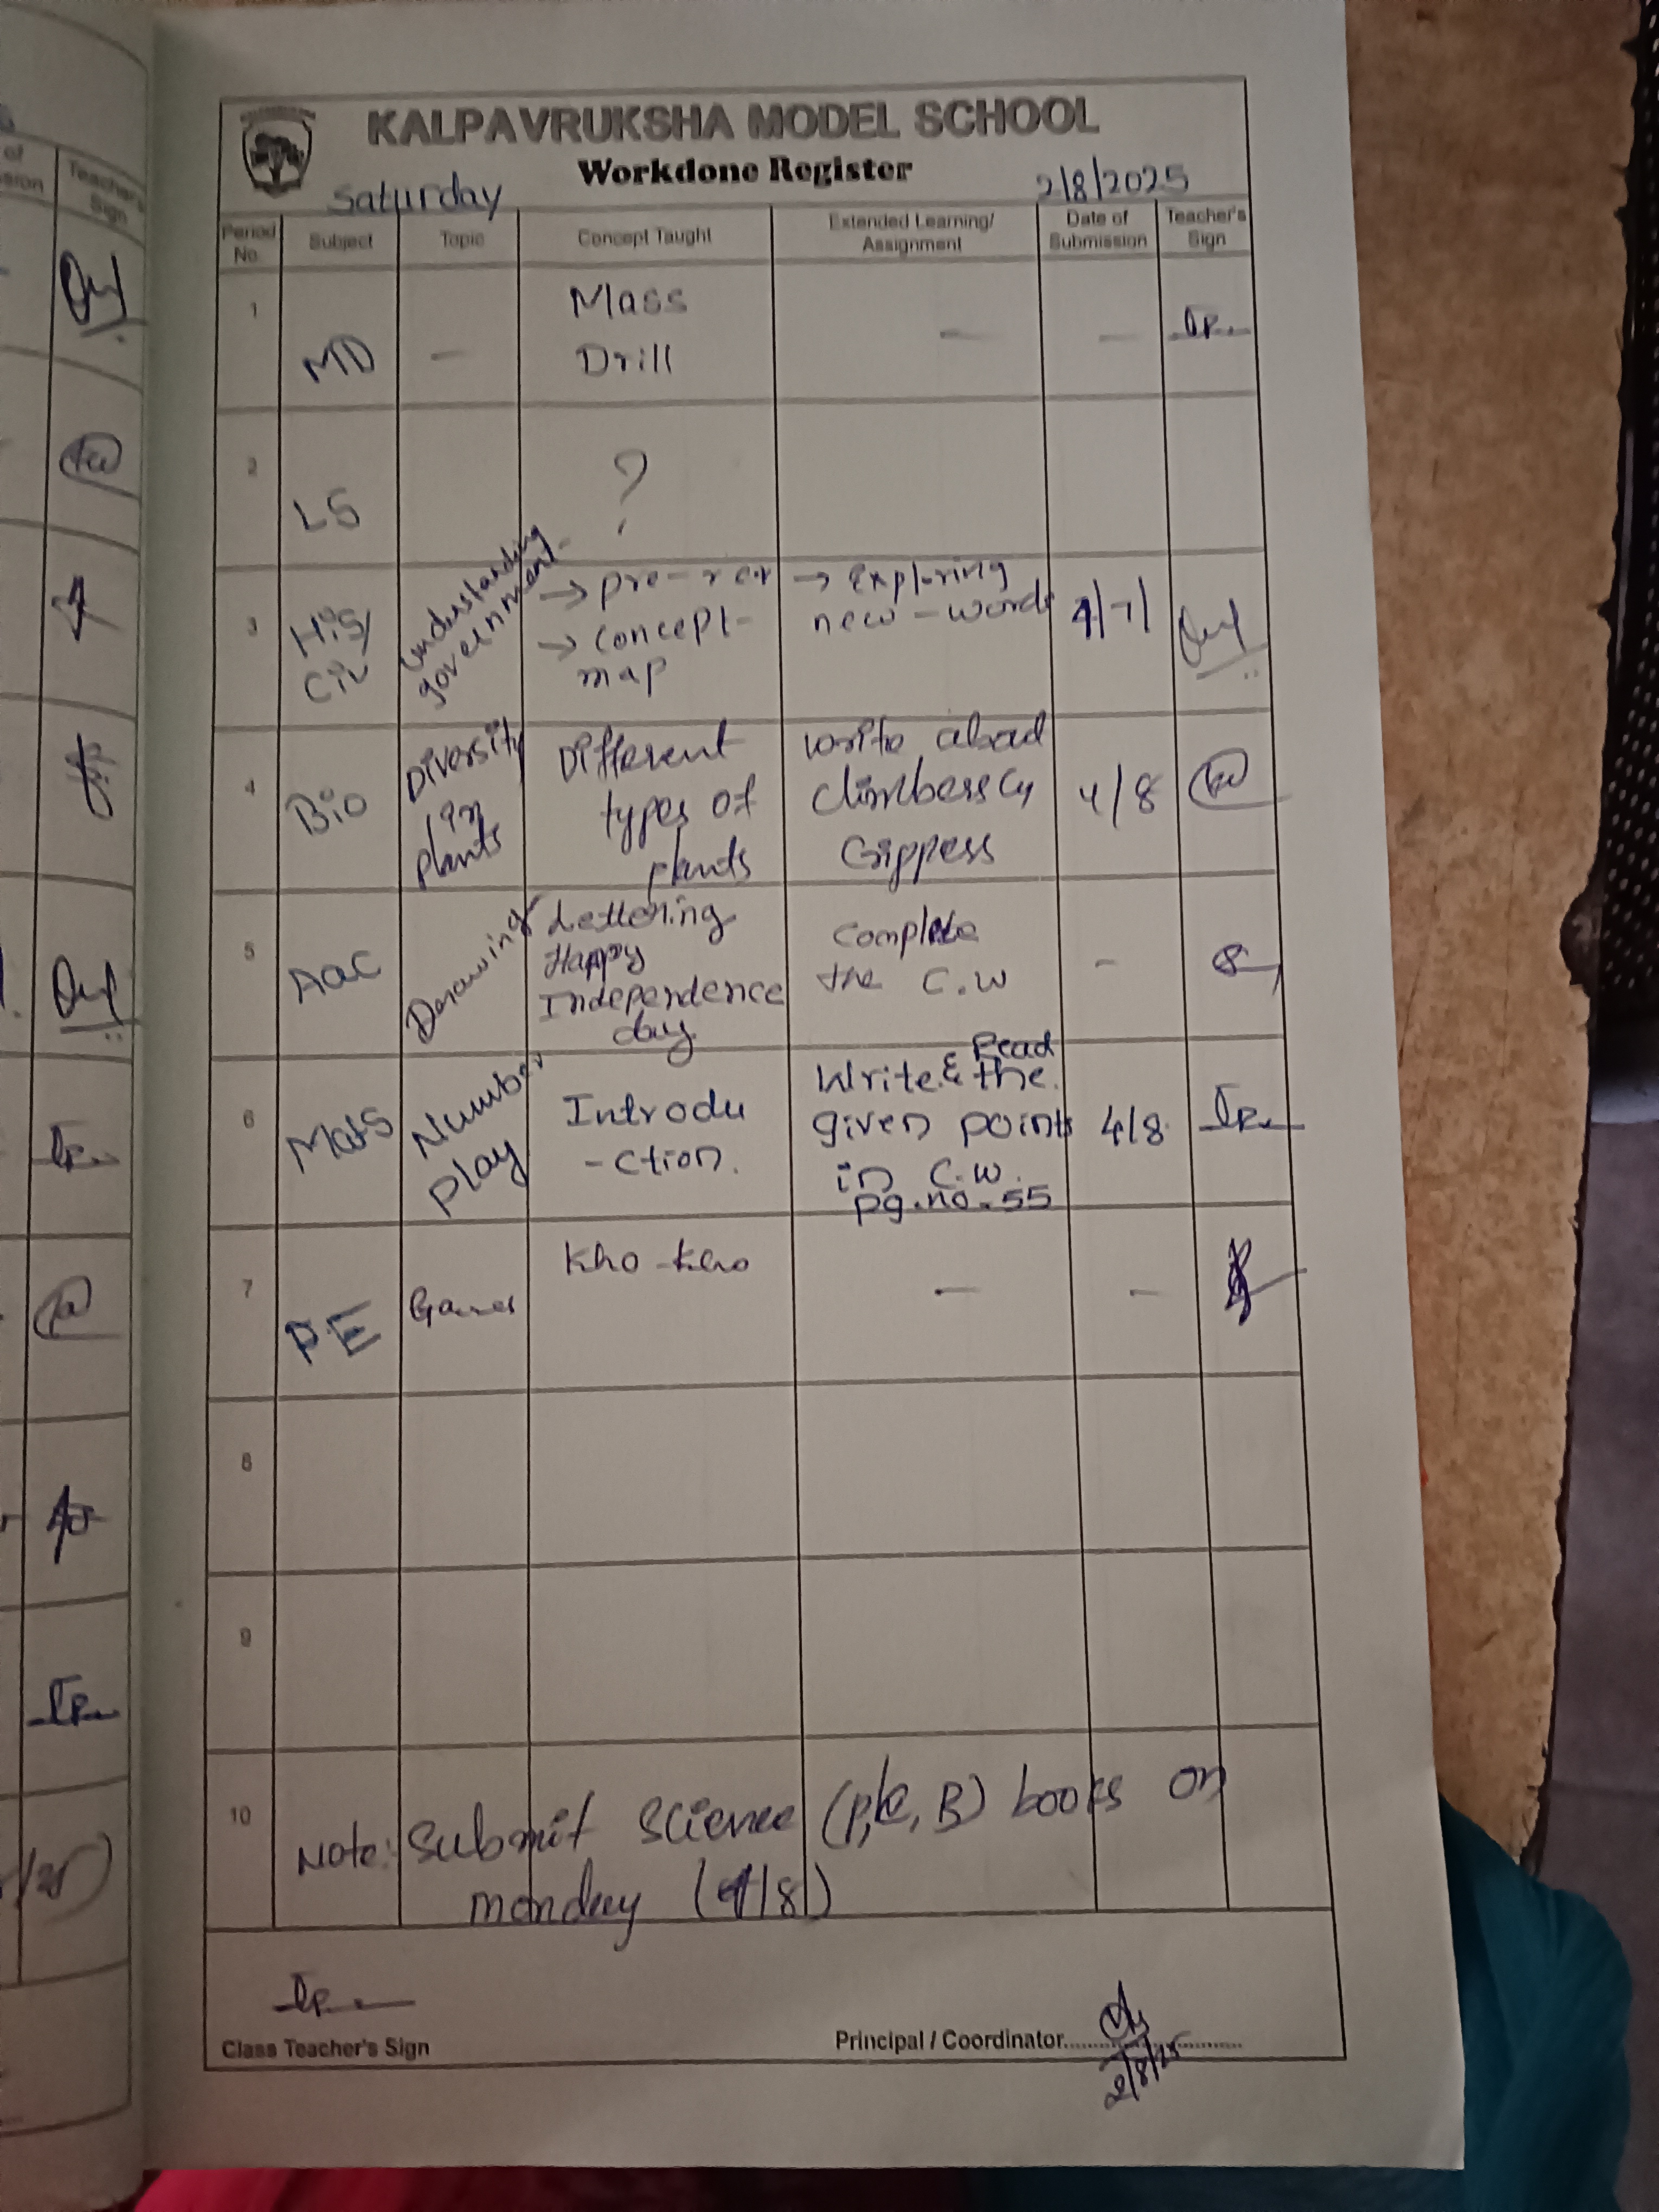 KALPAVRUKSHA MODEL SCHOOL
Workdone Register
Saturday 2/8/2025
Period No. Subject Topic Concept Taught Extended Learning/ Assignment Date of Submission Teacher's Sign
1 MD - Mass Drill - -
2 LS ?
3 His/ Civ understanding government → pre-req → concept-map → Exploring new-words 4/7/
4 Bio Diversity in plants Different types of plants write about climbers & crippers 4/8
5 Aac Drawing Lettering Happy Independence day. complete the C.W -
6 Mats Number play Introdu-ction. Write & Read the given points in C.W. pg.no.55 4/8
7 P.E Games Kho-kho - -
8
9
10 Note: Submit Science (P,C,B) books on
monday (4/8)
Class Teacher's Sign
Principal / Coordinator
2/8/25
of
Teacher's
Sign